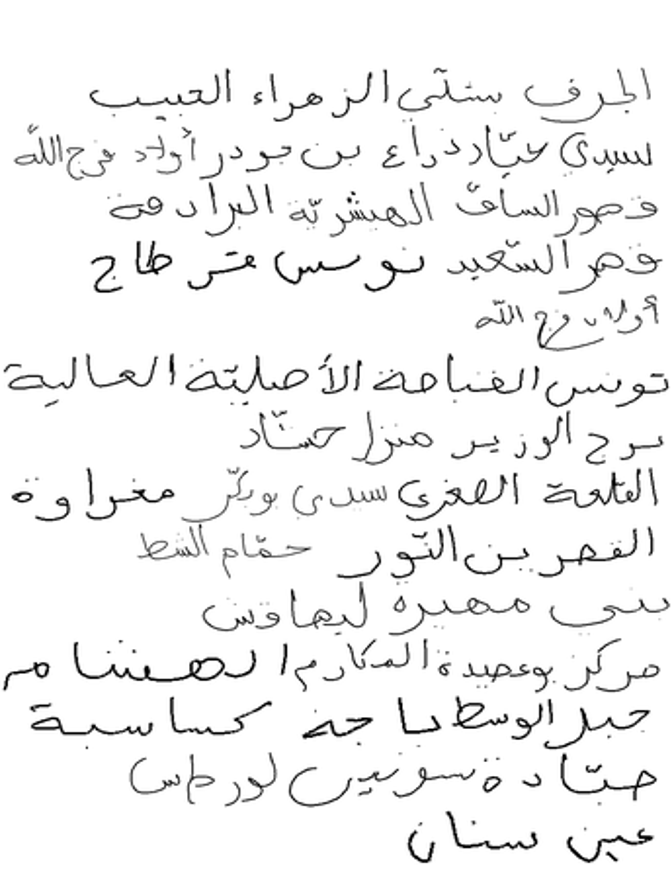 الجرف سناّتي الزهراء الحبيب
سيدي عيّاد ذراع بن جودر أولاد فرج اللّه
قصور الساف الهيشريّة البرادعة
قصر السّعيد تونس قرطاج
أولاد فرج اللّه
تونس القباضة الأصليّة العالية
برج الوزير منزل حشّاد
القلعة الصغرى سيدي بوبكّر مغراوة
القصر بن النّور حمّام الشط
بني مهيرة ليهاوش
مركز بوعصيدة المكارم
جبل الوسط باجة كساسبة
صيّادة سونين لورطاس
عين سنان